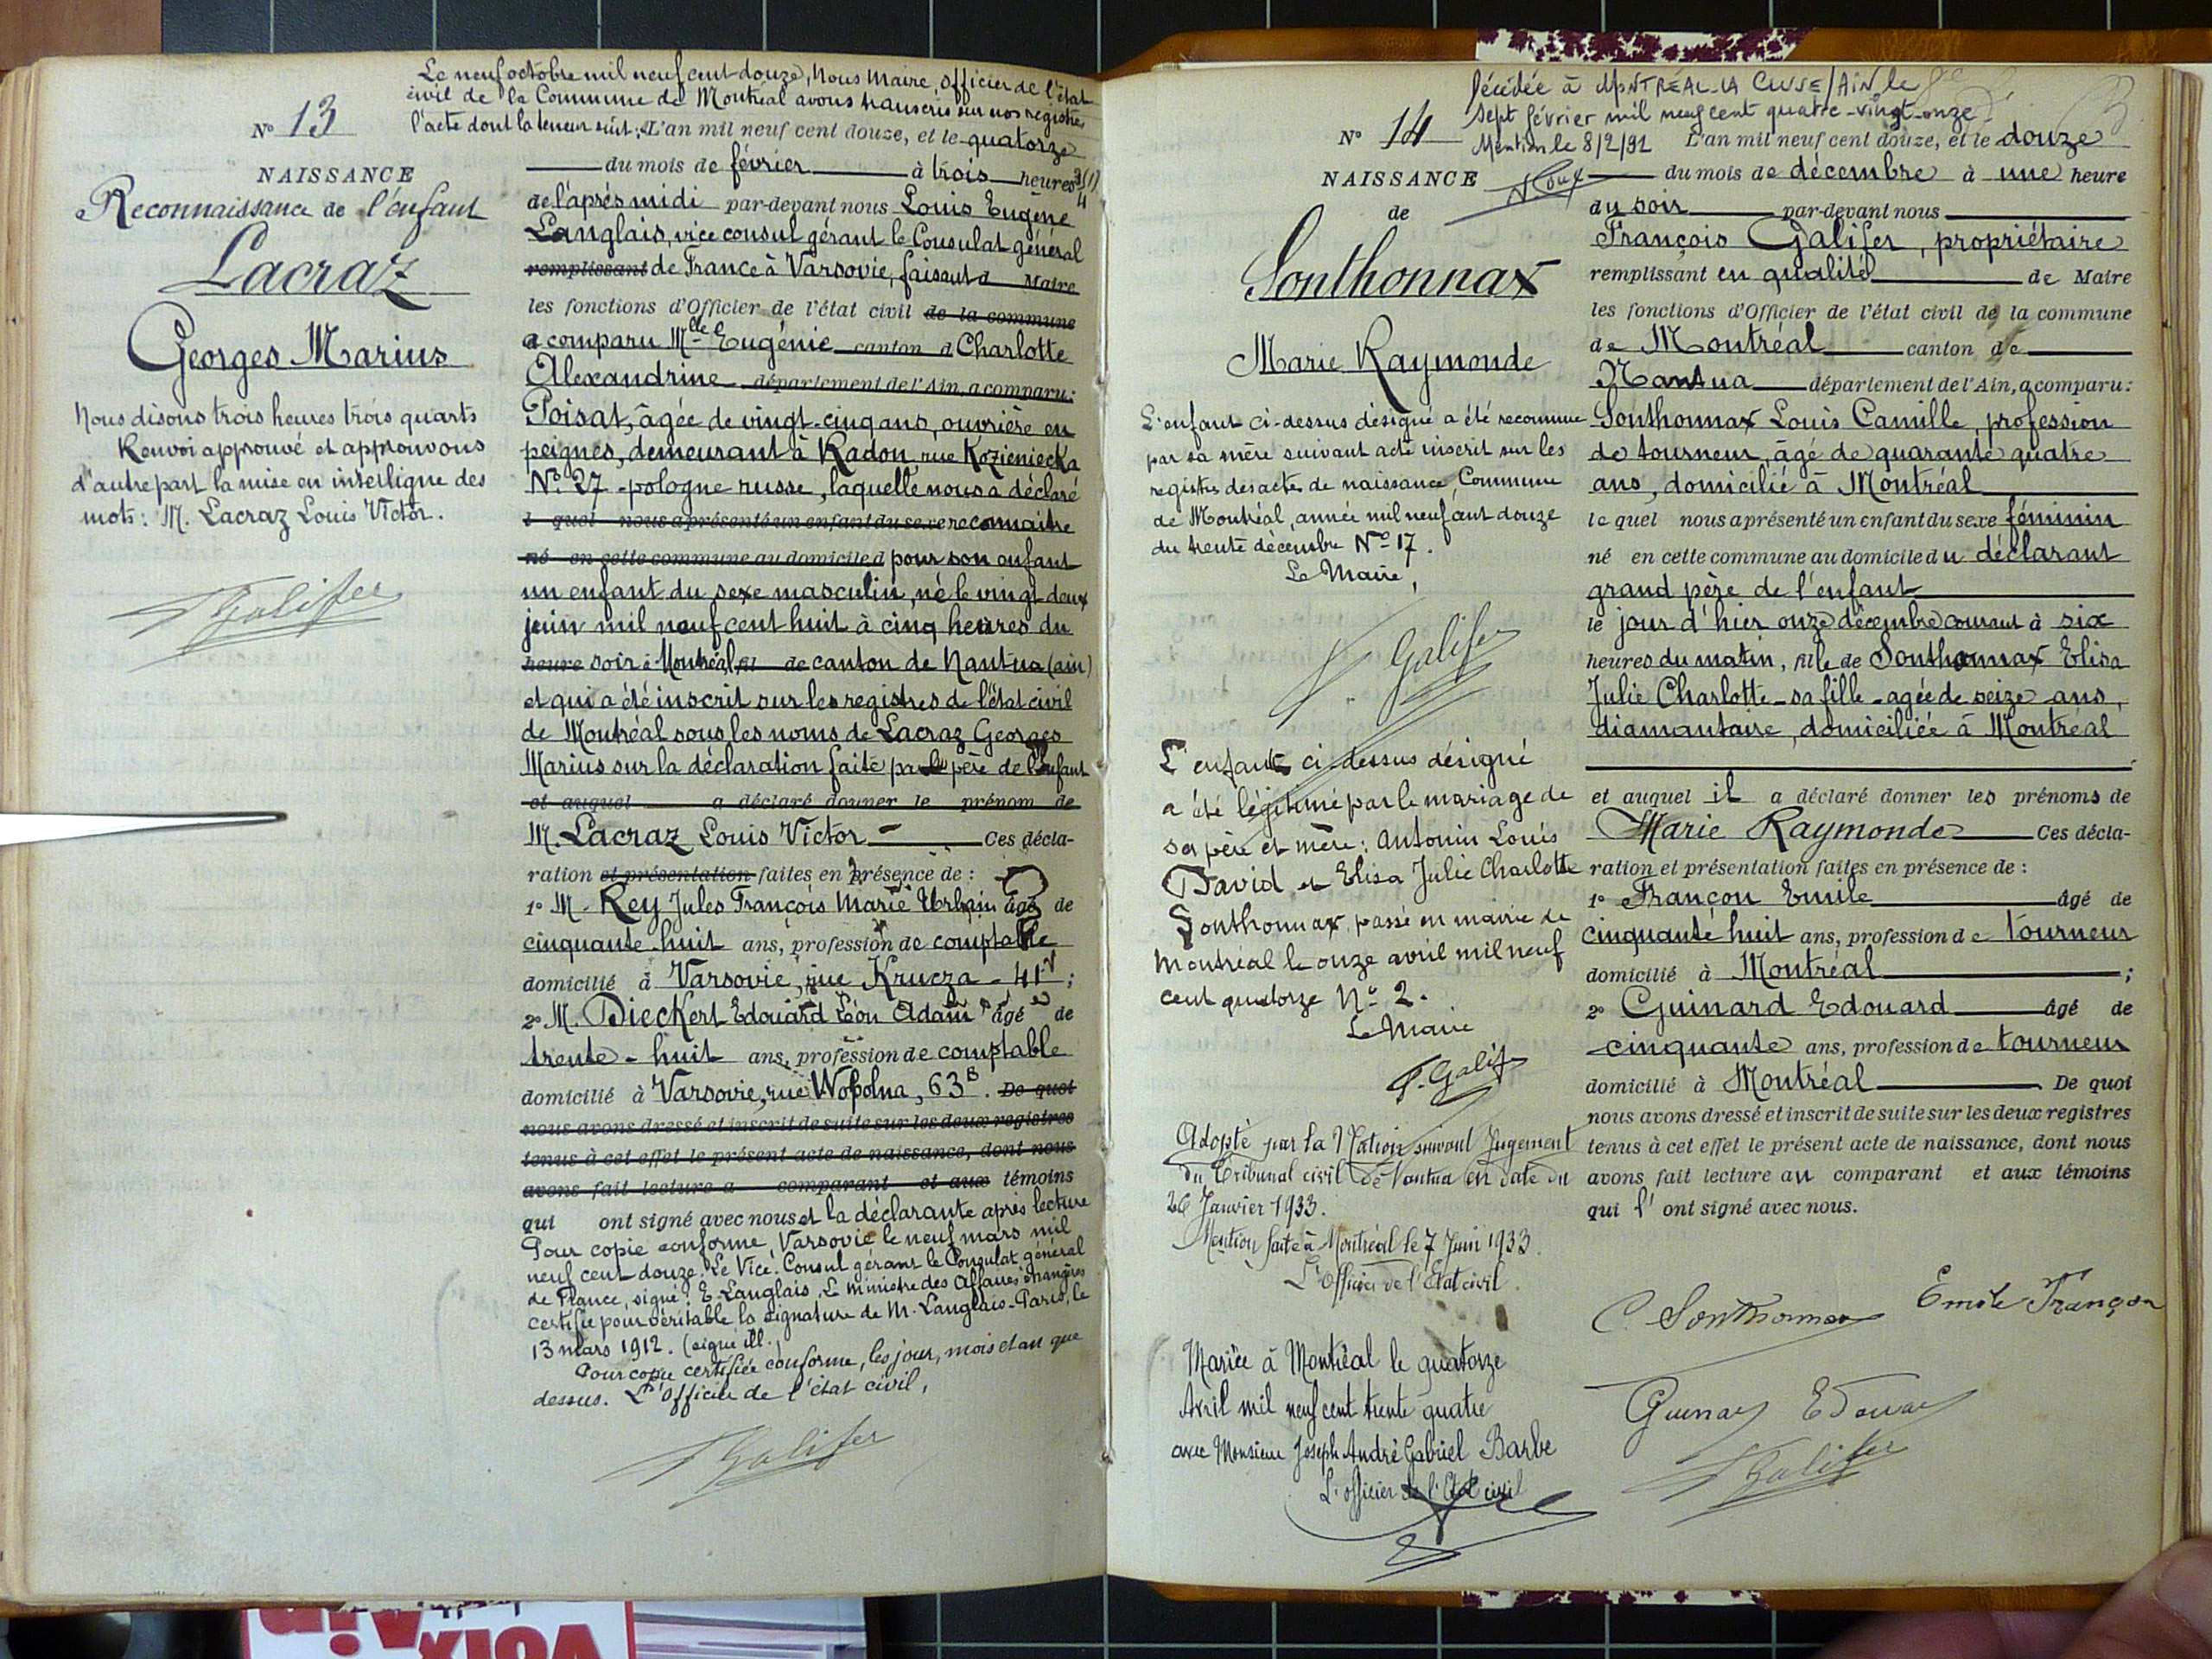 Le neuf octobre mil neuf cent douze, Nous Maire, officier de l'état
civil de la Commune de Montréal avons transcris sur nos registres
l'acte dont la teneur suit : L'an mil neuf cent douze, et le quatorze
N° 13
NAISSANCE
Reconnaissance de l'enfant
Lacraz
Georges Marius
Nous disons trois heures trois quarts
Renvoi approuvé et approuvons
d'autre part la mise en interligne des
mots : M. Lacraz Louis Victor.
F Galifer
du mois de février à trois heures 3/4 (1)
de l'après midi par-devant nous Louis Eugène
Langlais, vice consul gérant le Consulat général
remplissant de France à Varsovie, faisant d Maire
les fonctions d'Officier de l'état civil de la commune
a comparu Mlle Eugénie canton d Charlotte
Alexandrine département de l'Ain, a comparu :
Poisat, âgée de vingt-cinq ans, ouvrière en
peignes, demeurant à Radon, rue Kozieniecka
N° 27 - pologne russe, laquelle nous a déclaré
l quel nous a présenté un enfant du sexe reconnaitre
né en cette commune au domicile d pour son enfant
un enfant du sexe masculin, né le vingt deux
juin mil neuf cent huit à cinq heures du
heure soir à Montréal, fil de canton de Nantua (ain)
et qui a été inscrit sur les registres de l'état civil
de Montréal sous les noms de Lacraz Georges
Marius sur la déclaration faite par le père de l'enfant
et auquel a déclaré donner le prénom de
M. Lacraz Louis Victor Ces décla-
ration et présentation faites en présence de :
1° M. Rey Jules François Marie Urbain âgé de
cinquante-huit ans, profession de comptable
domicilié à Varsovie, rue Krucza - 41 ;
2° M. Dieckert Edouard Léon Adam âgé de
trente-huit ans, profession de comptable
domicilié à Varsovie, rue Wopolna, 63B. De quoi
nous avons dressé et inscrit de suite sur les deux registres
tenus à cet effet le présent acte de naissance, dont nous
avons fait lecture a comparant et aux témoins
qui ont signé avec nous et la déclarante après lecture
Pour copie conforme, Varsovie le neuf mars mil
neuf cent douze. Le Vice-Consul gérant le Consulat général
de France, signé : E. Langlais, Le ministre des Affaires étrangères
certifie pour véritable la signature de M. Langlais - Paris, le
13 mars 1912. (signé ill.
Pour copie certifiée conforme, les jour, mois et an que
dessus. L'officier de l'état civil,
F Galifer
Décédée à MONTRÉAL-LA CLUSE / AIN, le
sept février mil neuf cent quatre-vingt-onze
Mention le 8/2/91
N° 14
NAISSANCE
de
Sonthonnax
Marie Raymonde
L'enfant ci-dessus désigné a été reconnue
par sa mère suivant acte inscrit sur les
registres des actes de naissance, Commune
de Montréal, année mil neuf cent douze
du trente décembre N° 17.
Le Maire,
F Galifer
L'enfant ci-dessus désigné
a été légitimé par le mariage de
ses père et mère : Antonin Louis
David et Elisa Julie Charlotte
Sonthonnax, passé en mairie de
Montréal le onze avril mil neuf
cent quatorze N° 2.
Le Maire
F. Galif
Adopté par la Nation suivant Jugement
du Tribunal civil de Nantua en date du
26 Janvier 1933.
Mention faite à Montréal le 7 Juin 1933.
L'Officier de l'Etat civil.
Mariée à Montréal le quatorze
Avril mil neuf cent trente quatre
avec Monsieur Joseph André Gabriel Barbe
L'officier de l'Etat civil
L'an mil neuf cent douze, et le douze
du mois de décembre à une heure
du soir par-devant nous
François Galifer, propriétaire
remplissant en qualité de Maire
les fonctions d'Officier de l'état civil de la commune
de Montréal canton de
Nantua département de l'Ain, a comparu :
Sonthonnax Louis Camille, profession
de tourneur, âgé de quarante quatre
ans, domicilié à Montréal
le quel nous a présenté un enfant du sexe féminin
né en cette commune au domicile du déclarant
grand père de l'enfant
le jour d'hier onze décembre courant à six
heures du matin, fille de Sonthonnax Elisa
Julie Charlotte - sa fille - agée de seize ans,
diamantaire, domiciliée à Montréal
et auquel il a déclaré donner les prénoms de
Marie Raymonde Ces décla-
ration et présentation faites en présence de :
1° Françon Emile âgé de
cinquante huit ans, profession de tourneur
domicilié à Montréal ;
2° Guinard Edouard âgé de
cinquante ans, profession de tourneur
domicilié à Montréal De quoi
nous avons dressé et inscrit de suite sur les deux registres
tenus à cet effet le présent acte de naissance, dont nous
avons fait lecture au comparant et aux témoins
qui l' ont signé avec nous.
C. Sonthonnax Emile Françon
Guinard Edouar
F Galifer